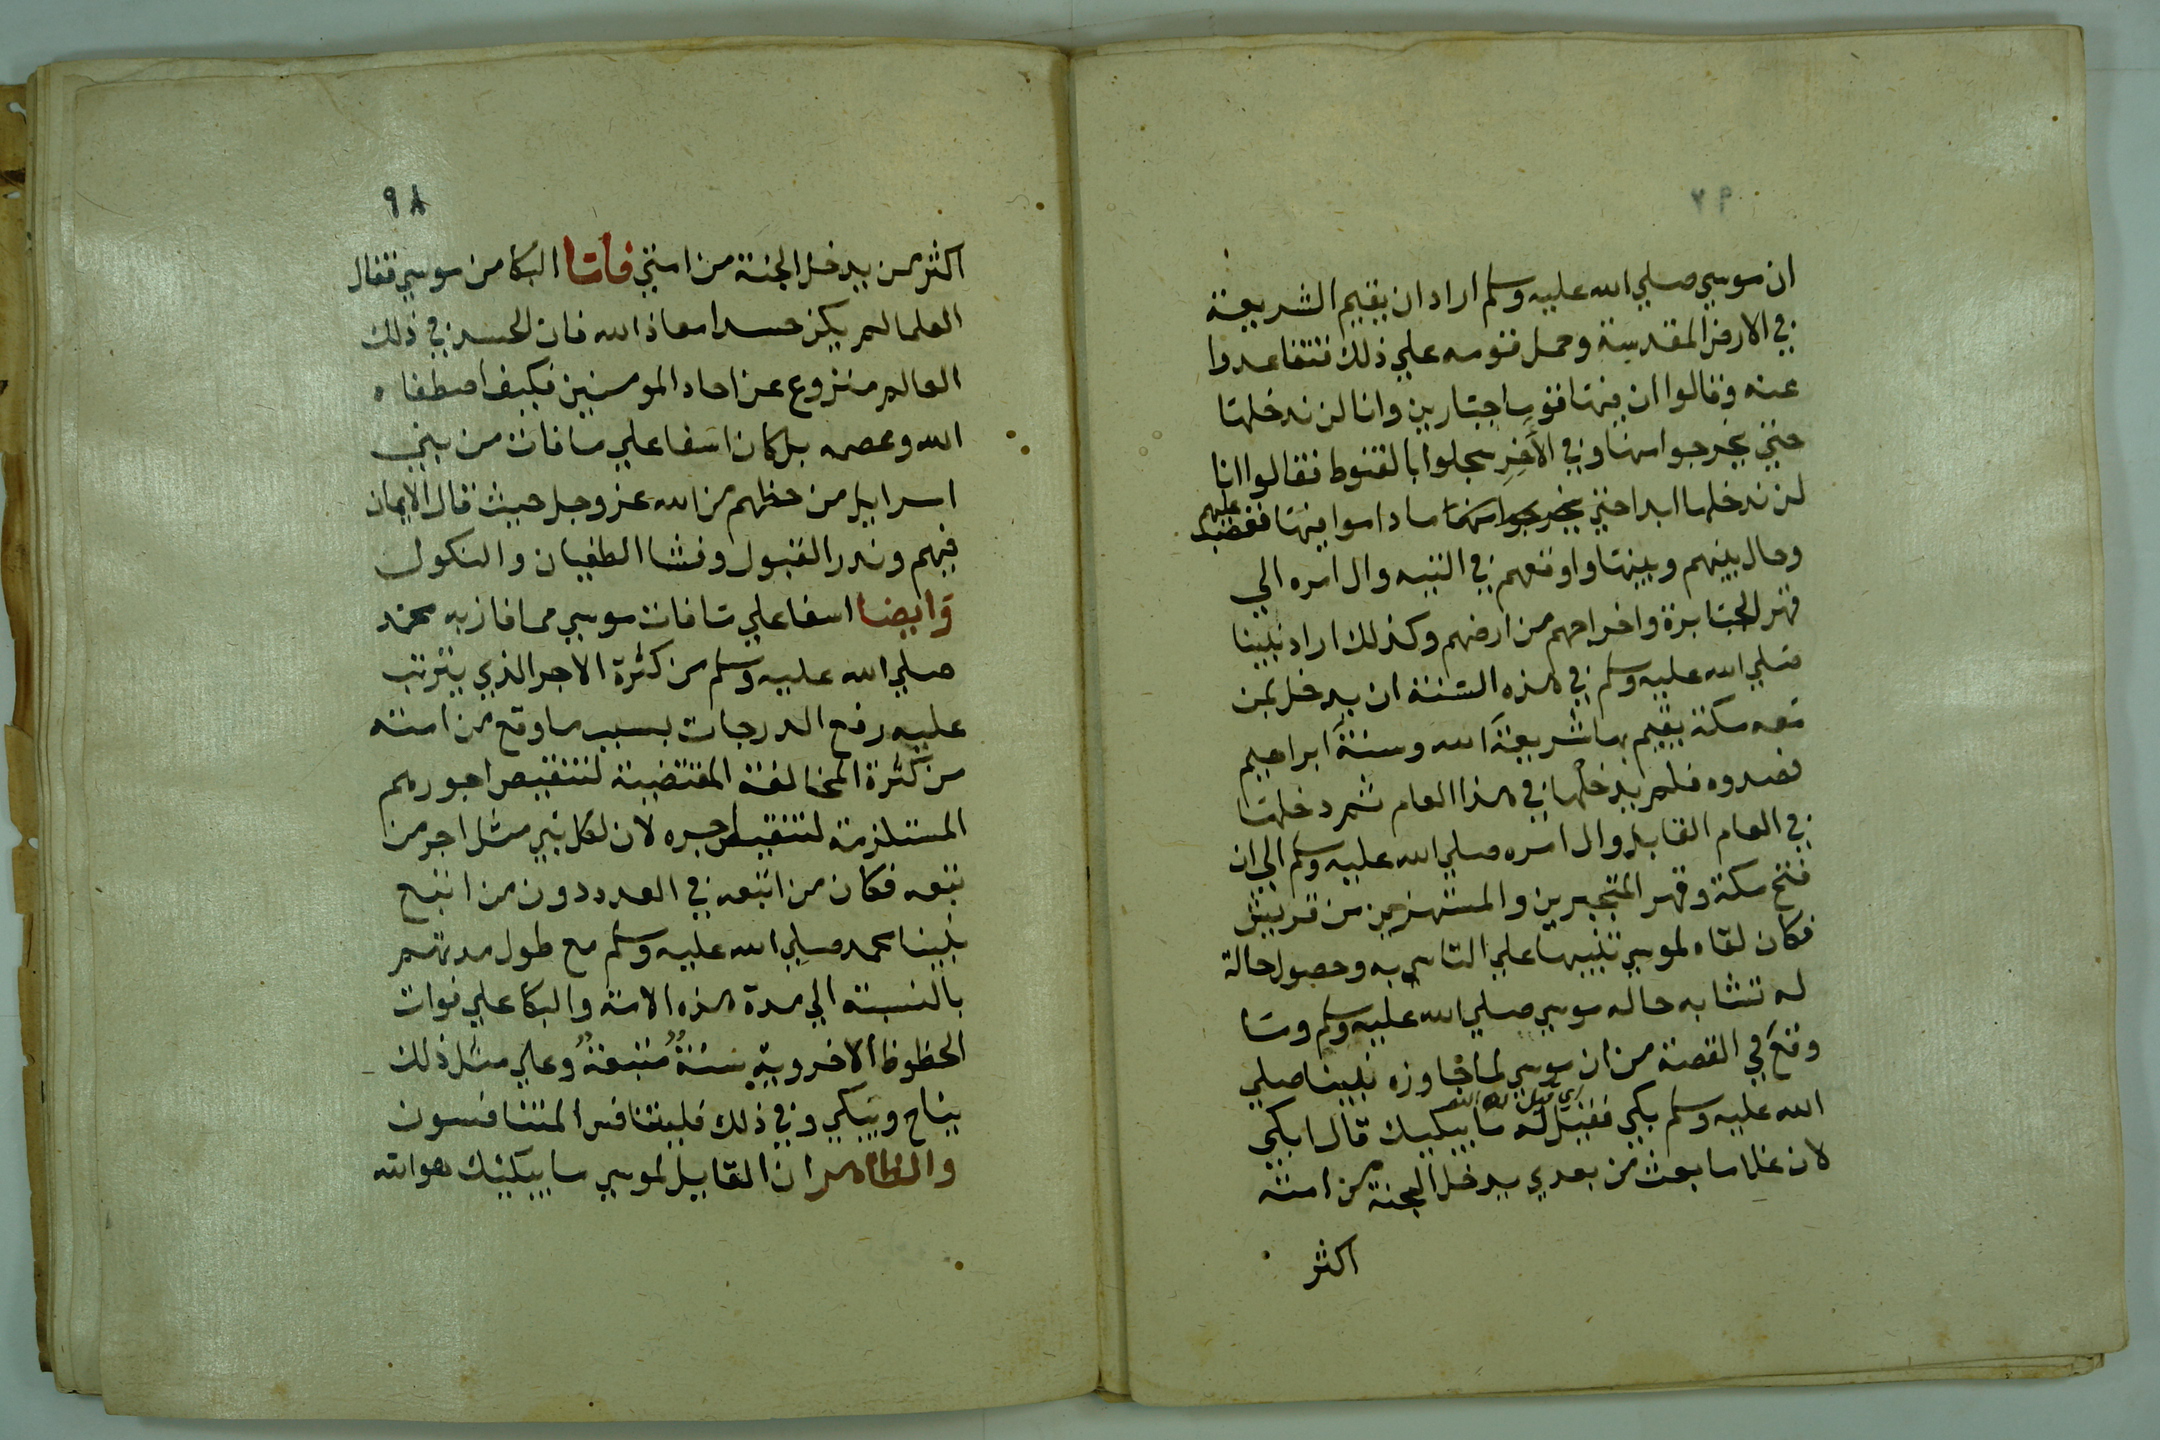 ٩٧
ان موسي صلي الله عليه وسلم اراد ان يقيم الشريعة
في الارض المقدسة وحمل قومه علي ذلك فتقاعدوا
عنه وقالوا ان فيها قوما جبارين وانا لن ندخلها
حتي يخرجوا منها وفي الآخر سجلوا بالقنوط فقالوا انا
لن ندخلها ابدا حتي يخرجوا منها ما داموا فيها فغضب عليهم
وحال بينهم وبينها واوقعهم في التيه وال امره الي
قهر الجبابرة واخراجهم من ارضهم وكذلك اراد نبينا
صلي الله عليه وسلم في هذه السنة ان يدخل بمن
معه مكة يقيم بها شريعة الله وسنة ابراهيم
فصدوه فلم يدخلها في هذا العام ثم دخلها
في العام القابل وال امره صلي الله عليه وسلم الي ان
فتح مكة وقهر المتجبرين والمستهزيين من قريش
فكان لقاه لموسي تنبيها علي التاسي به وحصول حالة
له تشابه حاله موسي صلي الله عليه وسلم وما
وقع في القصة من ان موسي لما جاوزه نبينا صلي
الله عليه وسلم بكي فقيل له ما يبكيك قال ابكي
لان غلاما بعث من بعدي يدخل الجنة من امته
اكثر
٩٨
اكثر من يدخل الجنة من امتي فاما البكا من موسي فقال
العلما لم يكن حسدا معاذ الله فان الحسد في ذلك
العالم منزوع عن احاد المومنين فكيف اصطفاه
الله وعصمه بل كان اسفا علي ما فات من بني
اسراييل من حظهم من الله عز وجل حيث قال الايمان
فيهم وندر القبول وفشا الطغيان والنكول
وايضا اسفا علي ما فات موسي مما فاز به محمد
صلي الله عليه وسلم من كثرة الاجر الذي يترتب
عليه رفع الدرجات بسبب ما وقع من امته
من كثرة المخالفة المقتضية لتنقيص اجورهم
المستلزمة لتنقيص اجره لان لكل نبي مثل اجر من
تبعه فكان من اتبعه في العدد دون من اتبع
نبينا محمد صلي الله عليه وسلم مع طول مدتهم
بالنسبة الي مدة هذه الامة والبكا علي فوات
الحظوظ الاخروية سنةٌ متبعةٌ وعلي مثل ذلك
يناح ويبكي وفي ذلك فليتنافس المتنافسون
والظاهر ان القايل لموسي ما يبكيك هو الله